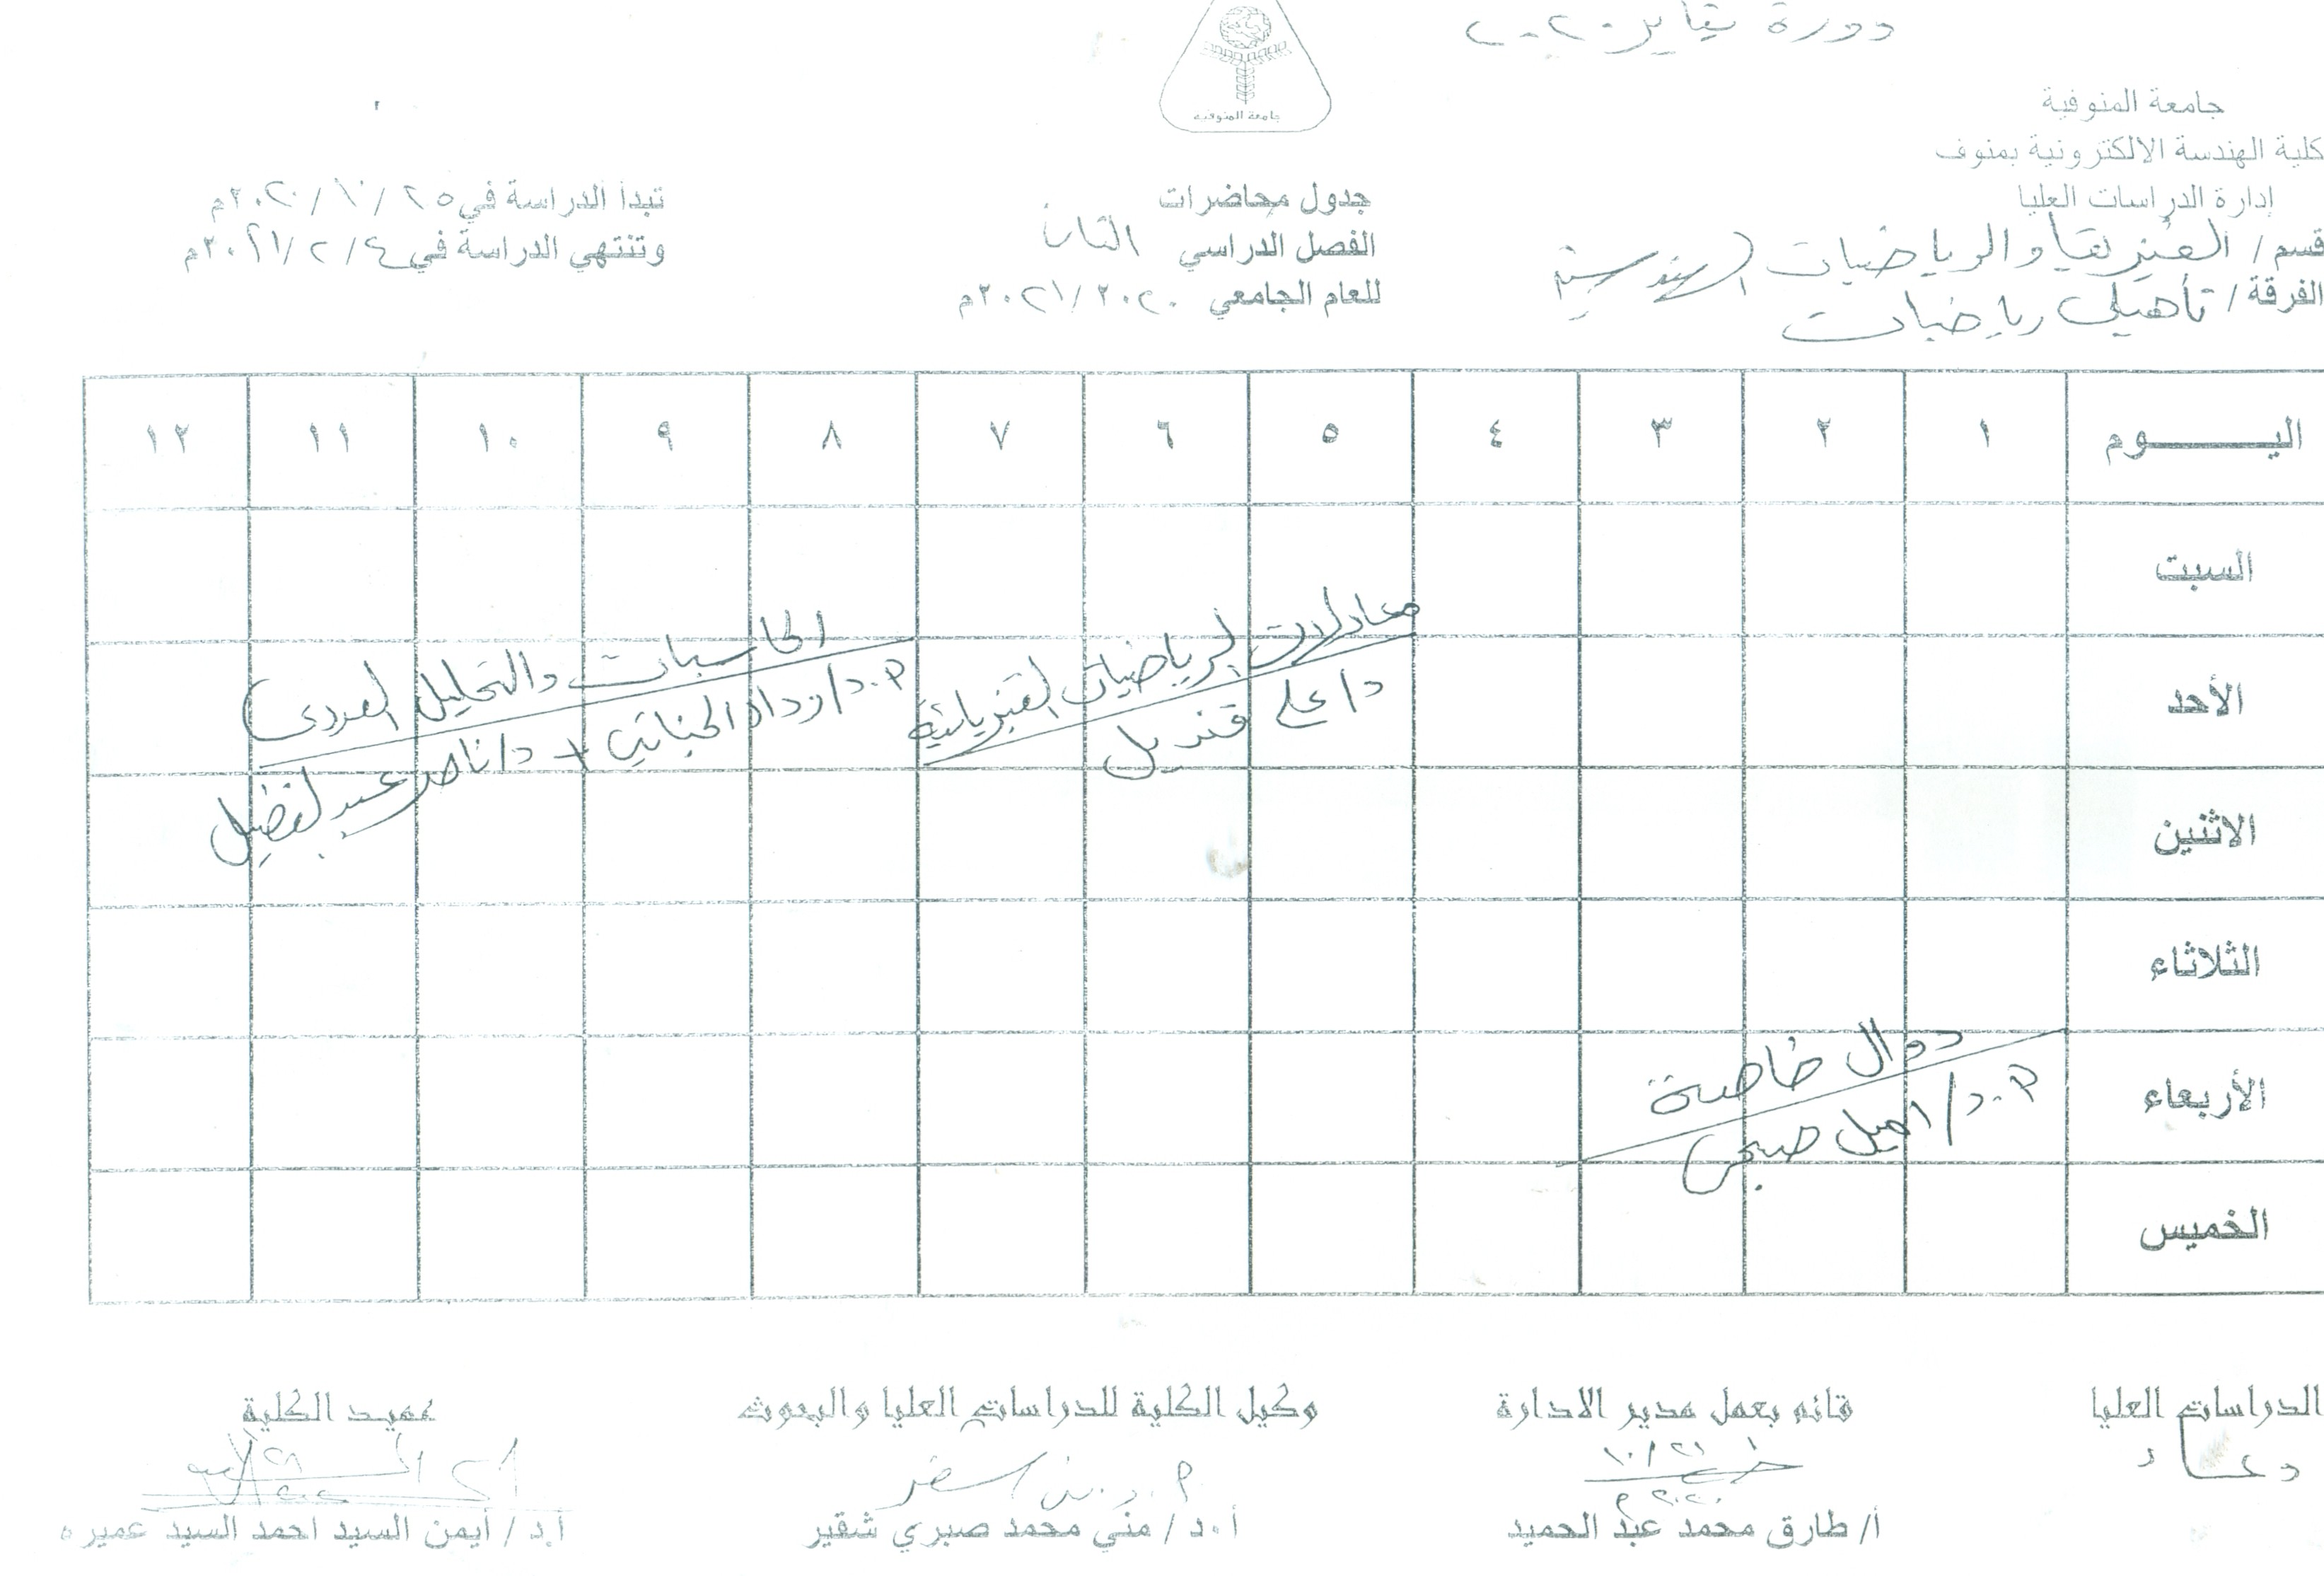 دورة يناير ٢٠٢٠
جامعة المنوفية
جامعة المنوفية
كلية الهندسة الالكترونية بمنوف
إدارة الدراسات العليا
قسم / الفيزيقا والرياضيات الهندسية
الفرقة / تأهيلى رياضيات
جدول محاضرات
الفصل الدراسي الثانى
للعام الجامعي ٢٠٢٠ / ٢٠٢١م
تبدأ الدراسة في ٢٥ / ١٠ / ٢٠٢٠م
وتنتهي الدراسة في ٤ / ٢ / ٢٠٢١م
اليـــــوم ١ ٢ ٣ ٤ ٥ ٦ ٧ ٨ ٩ ١٠ ١١ ١٢
السبت
الأحد
معادلات الرياضيات الفيزيائية
د/ على قنديل
الحاسبات والتحليل العددى
أ.د/ وداد الجناينى + د/ ناصر عبد الفضيل
الاثنين
الثلاثاء
الأربعاء
دوال خاصة
أ.د/ اميل صبحى
الخميس
الدراسات العليا
دعاء
قائم بعمل مدير الادارة
١٠/٢١
٢٠٢٠م
أ/ طارق محمد عبد الحميد
وكيل الكلية للدراسات العليا والبحوث
أ.د / منى محمد صبري شقير
عميد الكلية
أ.د / أيمن السيد احمد السيد عميره